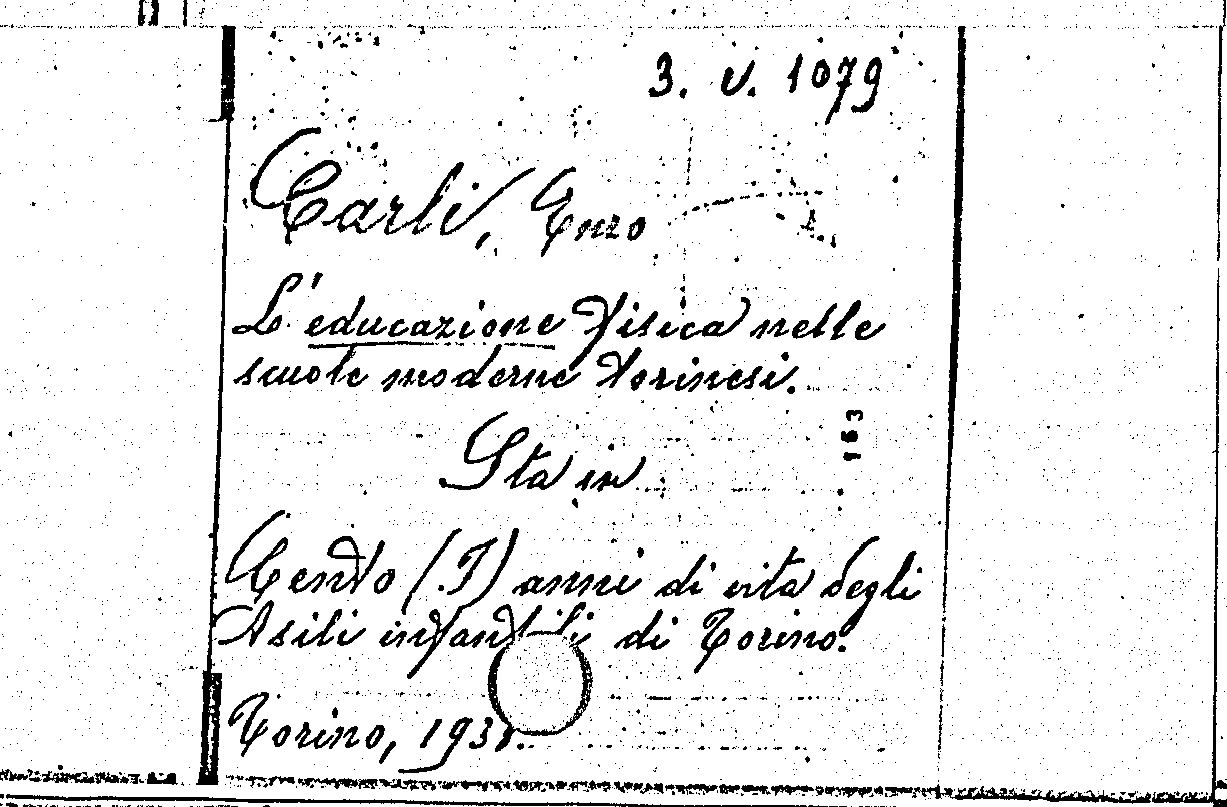 3. V. 1079
Carli, Enzo
L'educazione fisica nelle
scuole moderne torinesi.
163
Sta in
Cento (I) anni di vita degli
Asili infantili di Torino.
Torino,